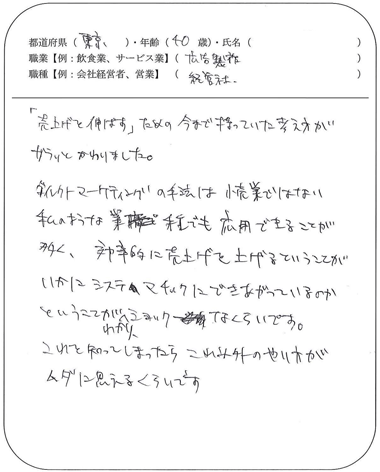 都道府県（東京、　）・年齢（40 歳）・氏名（　　　）
職業【例：飲食業、サービス業】（広告製作　　　）
職種【例：会社経営者、営業】（経営者　　　）
「売上げを伸ばす」ための今まで持っていた考え方が
ガラッとかわりました。
ダイレクトマーケティングの手法は小売業ではない
私のような業種でも応用できることが
多く、効率的に売上げを上げるということが
いかにシステマチックにできあがっているのか
ということがわかり、ショックなくらいです。
これを知ってしまったらこれ以外のやり方が
ムダに思えるくらいです